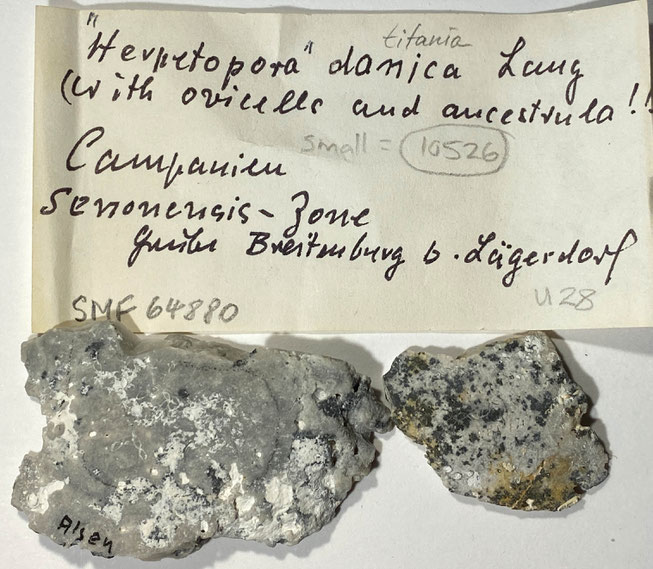 titania
"Herpetopora" danica Lang
(with ovicells and ancestrula!!
small = 10526
Campanien
Senonensis-Zone
Grube Breitenburg b. Lägerdorf
SMF 64880
U28
Alsen